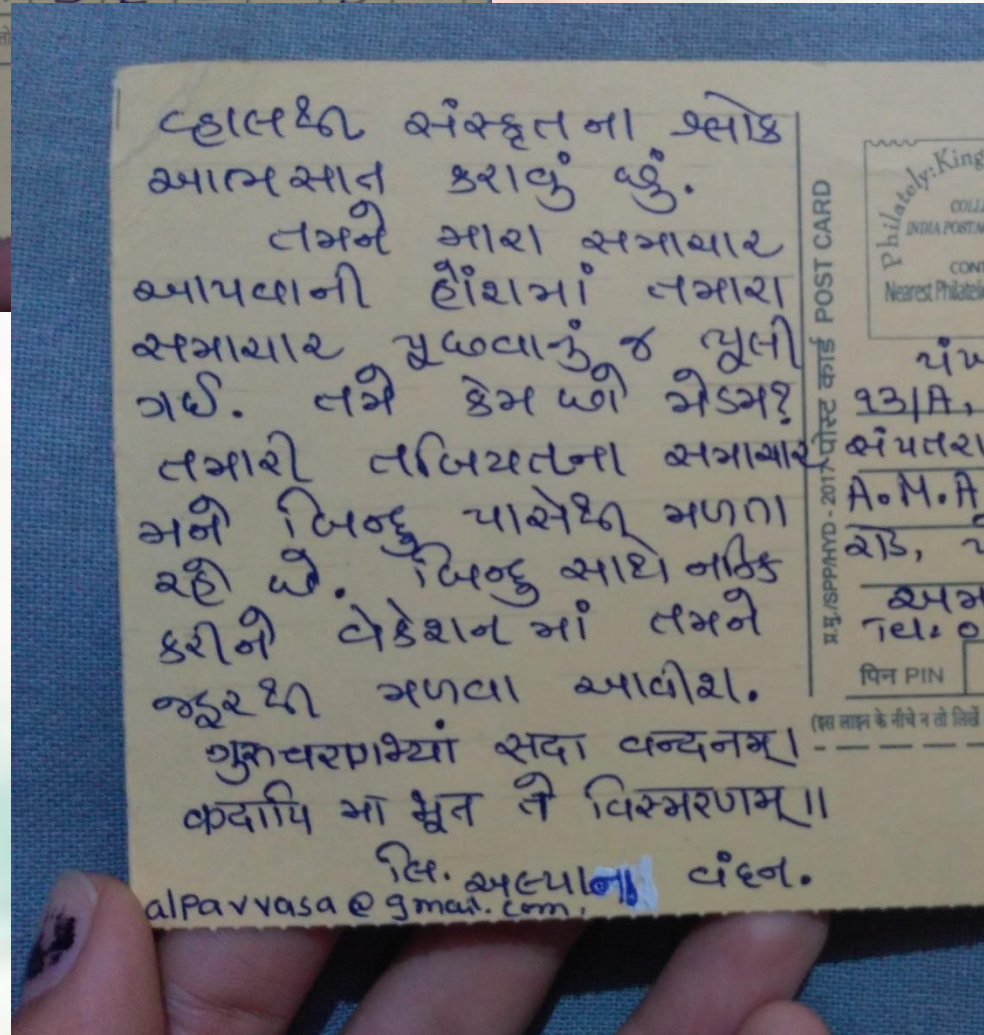 વ્હાલથી સંસ્કૃતના શ્લોક
આત્મસાત કરાવું છું.
તમને મારા સમાચાર
આપવાની હોંશમાં તમારા
સમાચાર પૂછવાનું જ ભૂલી
ગઈ. તમે કેમ છો મેડમ?
તમારી તબિયતના સમાચાર
મને બિન્દુ પાસેથી મળતા
રહે છે. બિન્દુ સાથે નક્કિ
કરીને વેકેશનમાં તમને
જરૂરથી મળવા આવીશ.
ગુરુચરણાભ્યાં સદા વન્દનમ્।
कदापि मा भूत ते विस्मरणम्॥
લિ. અલ્પાના વંદન.
alpavvasa@gmail.com.
प्र.मु./SPP/HYD-2017 पोस्ट कार्ड POST CARD
Philately: King
COLL
INDIA POSTA
CONT
Nearest Philatel
૧૩/A,
સંપતરા
A.M.A
રોડ,
અમ
Tel: 0
पिन PIN
(इस लाइन के नीचे न तो लिखें